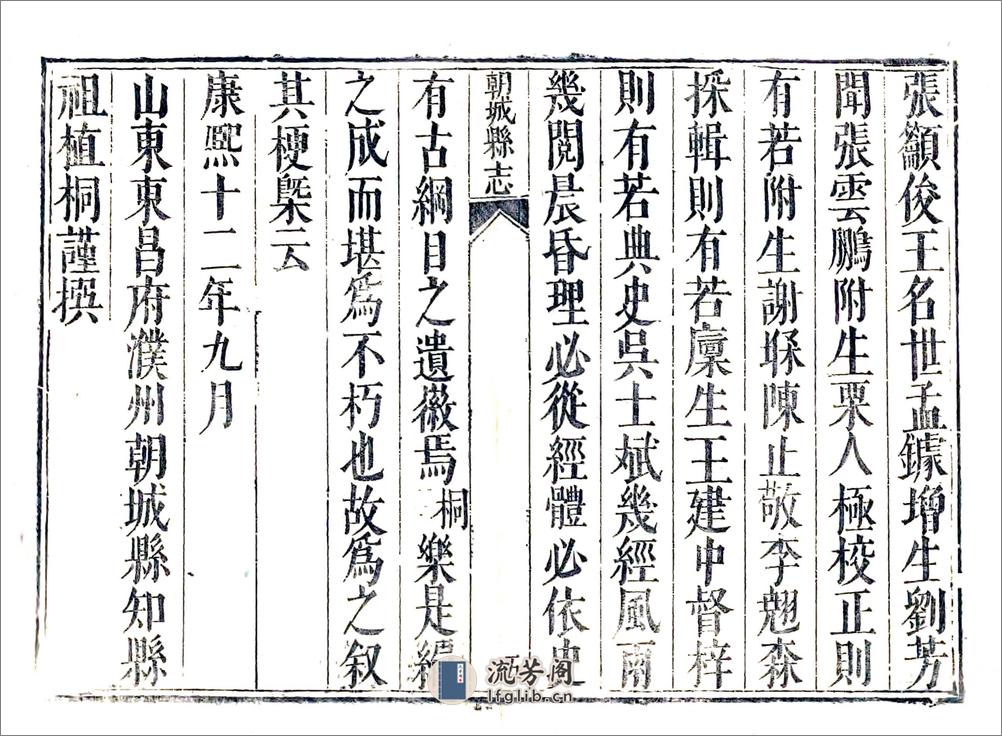 張籲俊王名世孟鐻增生劉芳
聞張雲鵬附生栗人極校正則
有若附生謝𦖠陳止敬李趐森
採輯則有若廩生王建中督梓
則有若典史吳士斌幾經風雨
幾閱晨昏理必從經體必依史
朝城縣志
有古綱目之遺徽焉桐樂是
之成而堪爲不朽也故爲之叙
其梗槩云
康熙十二年九月
山東東昌府濮州朝城縣知縣
祖植桐謹撰
流芳阁
lfglib.cn